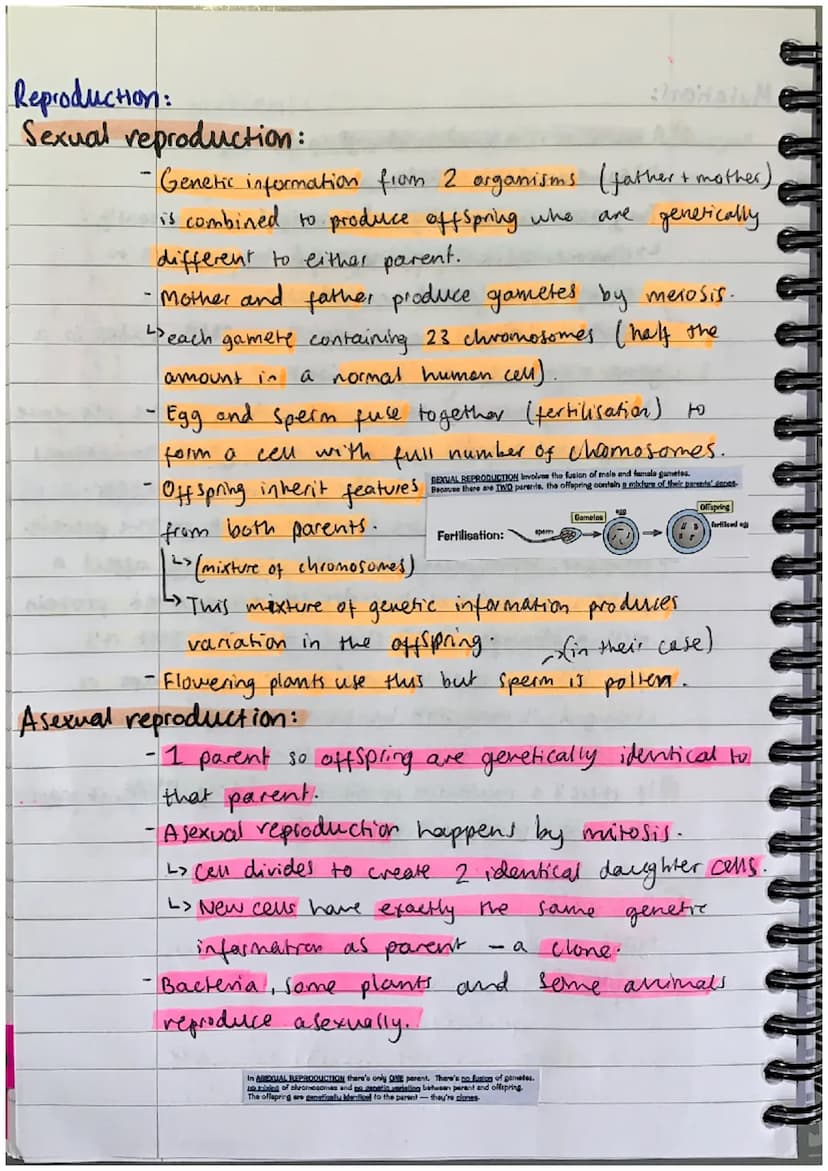 Reproduction:
Sexual reproduction:
- Genetic information from 2 organisms (father + mother)
is combined to produce offspring who are genetically
different to either parent.
- Mother and father produce gametes by meiosis.
↳ each gamete containing 23 chromosomes (half the
amount in a normal human cell).
- Egg and sperm fuse together (fertilisation) to
form a cell with full number of chamosomes.
- Offspring inherit features
from both parents.
SEXUAL REPRODUCTION involves the fusion of male and female gametes.
Because there are TWO parents, the offspring contain a mixture of their parents' genes.
Fertilisation:
sperm
Gametes
egg
Offspring
fertilised egg
↳ (mixture of chromosomes)
↳ This mixture of genetic information produces
variation in the offspring.
(in their case)
- Flowering plants use this but sperm is pollen.
Asexual reproduction:
- 1 parent so offspring are genetically identical to
that parent.
- Asexual reproduction happens by mitosis.
↳ Cell divides to create 2 identical daughter cells.
↳ New cells have exactly the same genetic
information as parent - a clone.
- Bacteria, some plants and some animals
reproduce asexually.
In ASEXUAL REPRODUCTION there's only ONE parent. There's no fusion of gametes,
no mixing of chromosomes and no genetic variation between parent and offspring.
The offspring are genetically identical to the parent — they're clones.